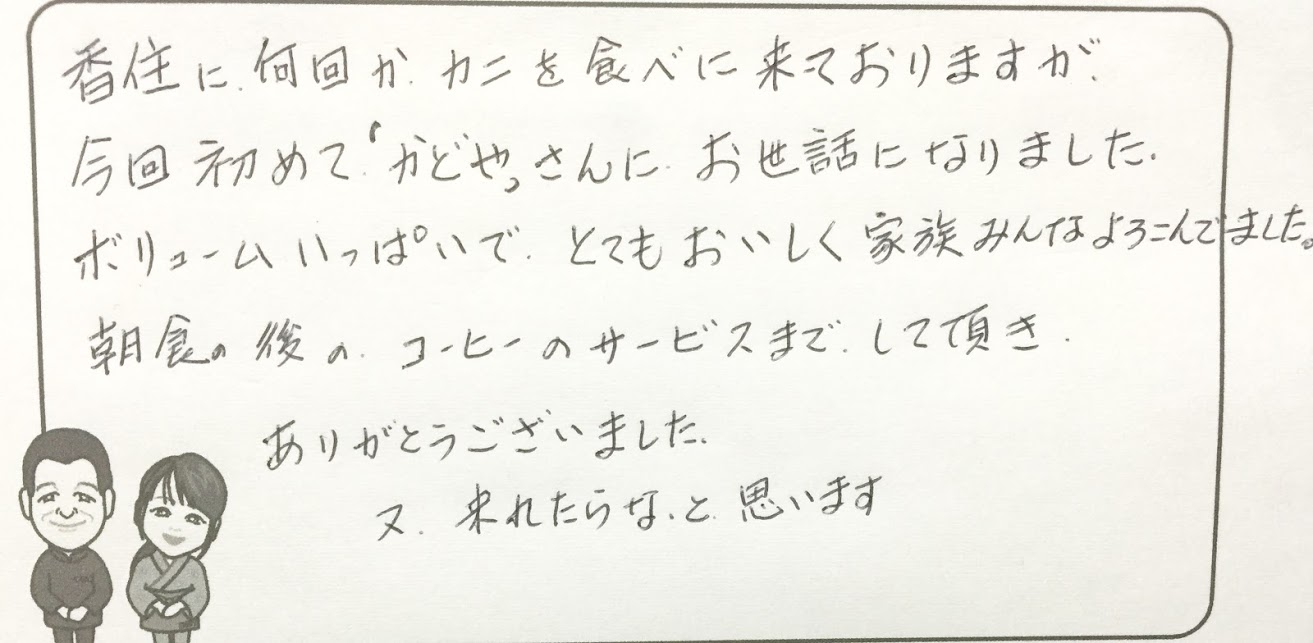 香住に、何回か、カニを食べに来ておりますが、
今回初めて、‘かどや，さんに、お世話になりました。
ボリュームいっぱいで、とてもおいしく家族みんなよろこんでました。
朝食の後の、コーヒーのサービスまで、して頂き、
ありがとうございました。
又、来れたらな、と、思います